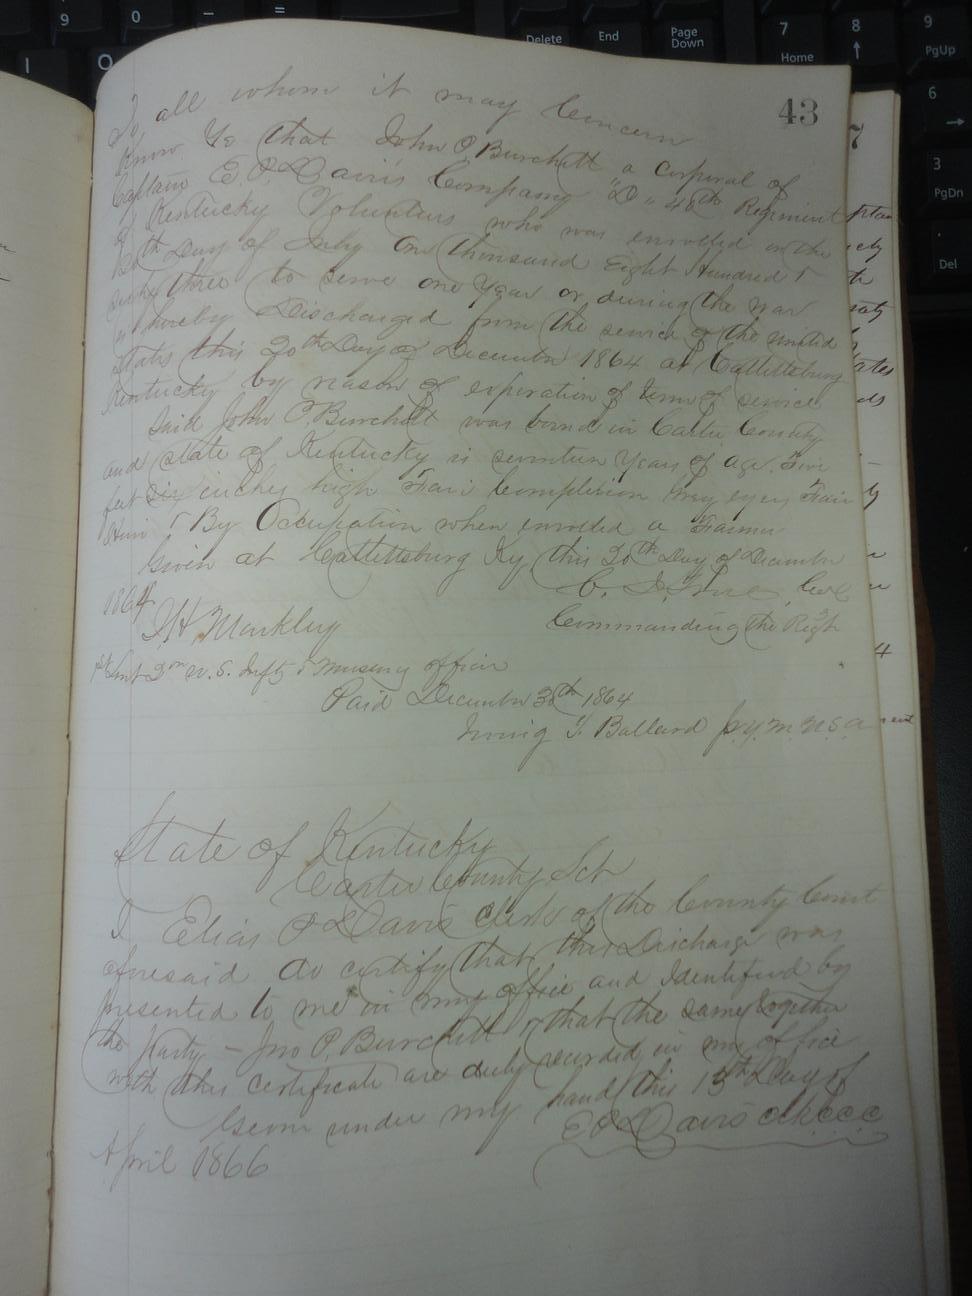 9
0
-
=
I
O
Delete
End
Page
Down
7
Home
8
9
PgUp
6
3
PgDn
Del
43
To all whom it may Concern
Know Ye that John P. Burchett a corporal of
Captain E. P. Davis Company "D" 40th Regiment
of Kentucky Volunteers who was enrolled on the
Day of July One thousand Eight Hundred &
sixty three to serve one year or during the war
is hereby Discharged from the service of the united
States this 20th Day of December 1864 at Catlettsburg
Kentucky by reason of experation of term of service
Said John P. Burchett was born in Carter County
and state of Kentucky is seventeen Years of age. Five
feet six inches high Fair Complexion Grey eyes Fair
Hair & By Occupation when enrolled a Farmer
Given at Catlettsburg Ky this 20th Day of December
1864
C. J. True Col
Commanding the Regt
H Markley
1st Lieut 2nd U. S. Infty & Mustering officer
Paid December 30th 1864
Irving T. Ballard P.Y.M.U.S.A
State of Kentucky
Carter County Sct
I Elias P Davis Clerk of the County Court
aforesaid do certify that this Discharge was
presented to me in my office and Identified by
the party - Jno P. Burchett & that the same together
with this certificate are duly recorded in my office
Given under my hand this 13th Day of
April 1866
E P Davis clk c c c